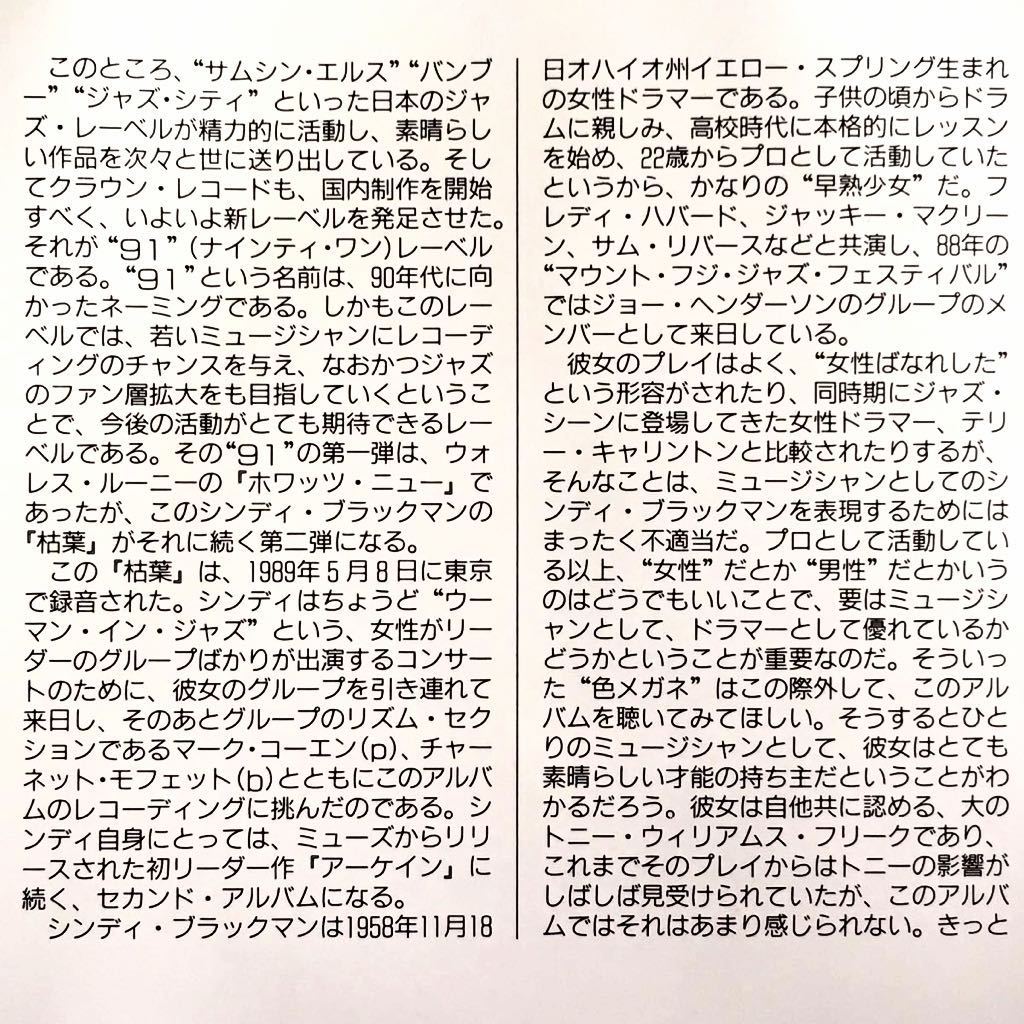 このところ、“サムシン・エルス”“バンブ
ー”“ジャズ・シティ”といった日本のジャ
ズ・レーベルが精力的に活動し、素晴らし
い作品を次々と世に送り出している。そし
てクラウン・レコードも、国内制作を開始
すべく、いよいよ新レーベルを発足させた。
それが“91”(ナインティ・ワン)レーベル
である。“91”という名前は、90年代に向
かったネーミングである。しかもこのレー
ベルでは、若いミュージシャンにレコーデ
ィングのチャンスを与え、なおかつジャズ
のファン層拡大をも目指していくというこ
とで、今後の活動がとても期待できるレー
ベルである。その“91”の第一弾は、ウォ
レス・ルーニーの『ホワッツ・ニュー』で
あったが、このシンディ・ブラックマンの
『枯葉』がそれに続く第二弾になる。
この『枯葉』は、1989年5月8日に東京
で録音された。シンディはちょうど“ウー
マン・イン・ジャズ”という、女性がリー
ダーのグループばかりが出演するコンサー
トのために、彼女のグループを引き連れて
来日し、そのあとグループのリズム・セク
ションであるマーク・コーエン(p)、チャー
ネット・モフェット(b)とともにこのアルバ
ムのレコーディングに挑んだのである。シ
ンディ自身にとっては、ミューズからリリ
ースされた初リーダー作『アーケイン』に
続く、セカンド・アルバムになる。
シンディ・ブラックマンは1958年11月18
日オハイオ州イエロー・スプリング生まれ
の女性ドラマーである。子供の頃からドラ
ムに親しみ、高校時代に本格的にレッスン
を始め、22歳からプロとして活動していた
というから、かなりの“早熟少女”だ。フ
レディ・ハバード、ジャッキー・マクリー
ン、サム・リバースなどと共演し、88年の
“マウント・フジ・ジャズ・フェスティバル”
ではジョー・ヘンダーソンのグループのメ
ンバーとして来日している。
彼女のプレイはよく、“女性ばなれした”
という形容がされたり、同時期にジャズ・
シーンに登場してきた女性ドラマー、テリ
ー・キャリントンと比較されたりするが、
そんなことは、ミュージシャンとしてのシ
ンディ・ブラックマンを表現するためには
まったく不適当だ。プロとして活動してい
る以上、“女性”だとか“男性”だとかいう
のはどうでもいいことで、要はミュージシ
ャンとして、ドラマーとして優れているか
どうかということが重要なのだ。そういっ
た“色メガネ”はこの際外して、このアル
バムを聴いてみてほしい。そうするとひと
りのミュージシャンとして、彼女はとても
素晴らしい才能の持ち主だということがわ
かるだろう。彼女は自他共に認める、大の
トニー・ウィリアムス・フリークであり、
これまでそのプレイからはトニーの影響が
しばしば見受けられていたが、このアルバ
ムではそれはあまり感じられない。きっと